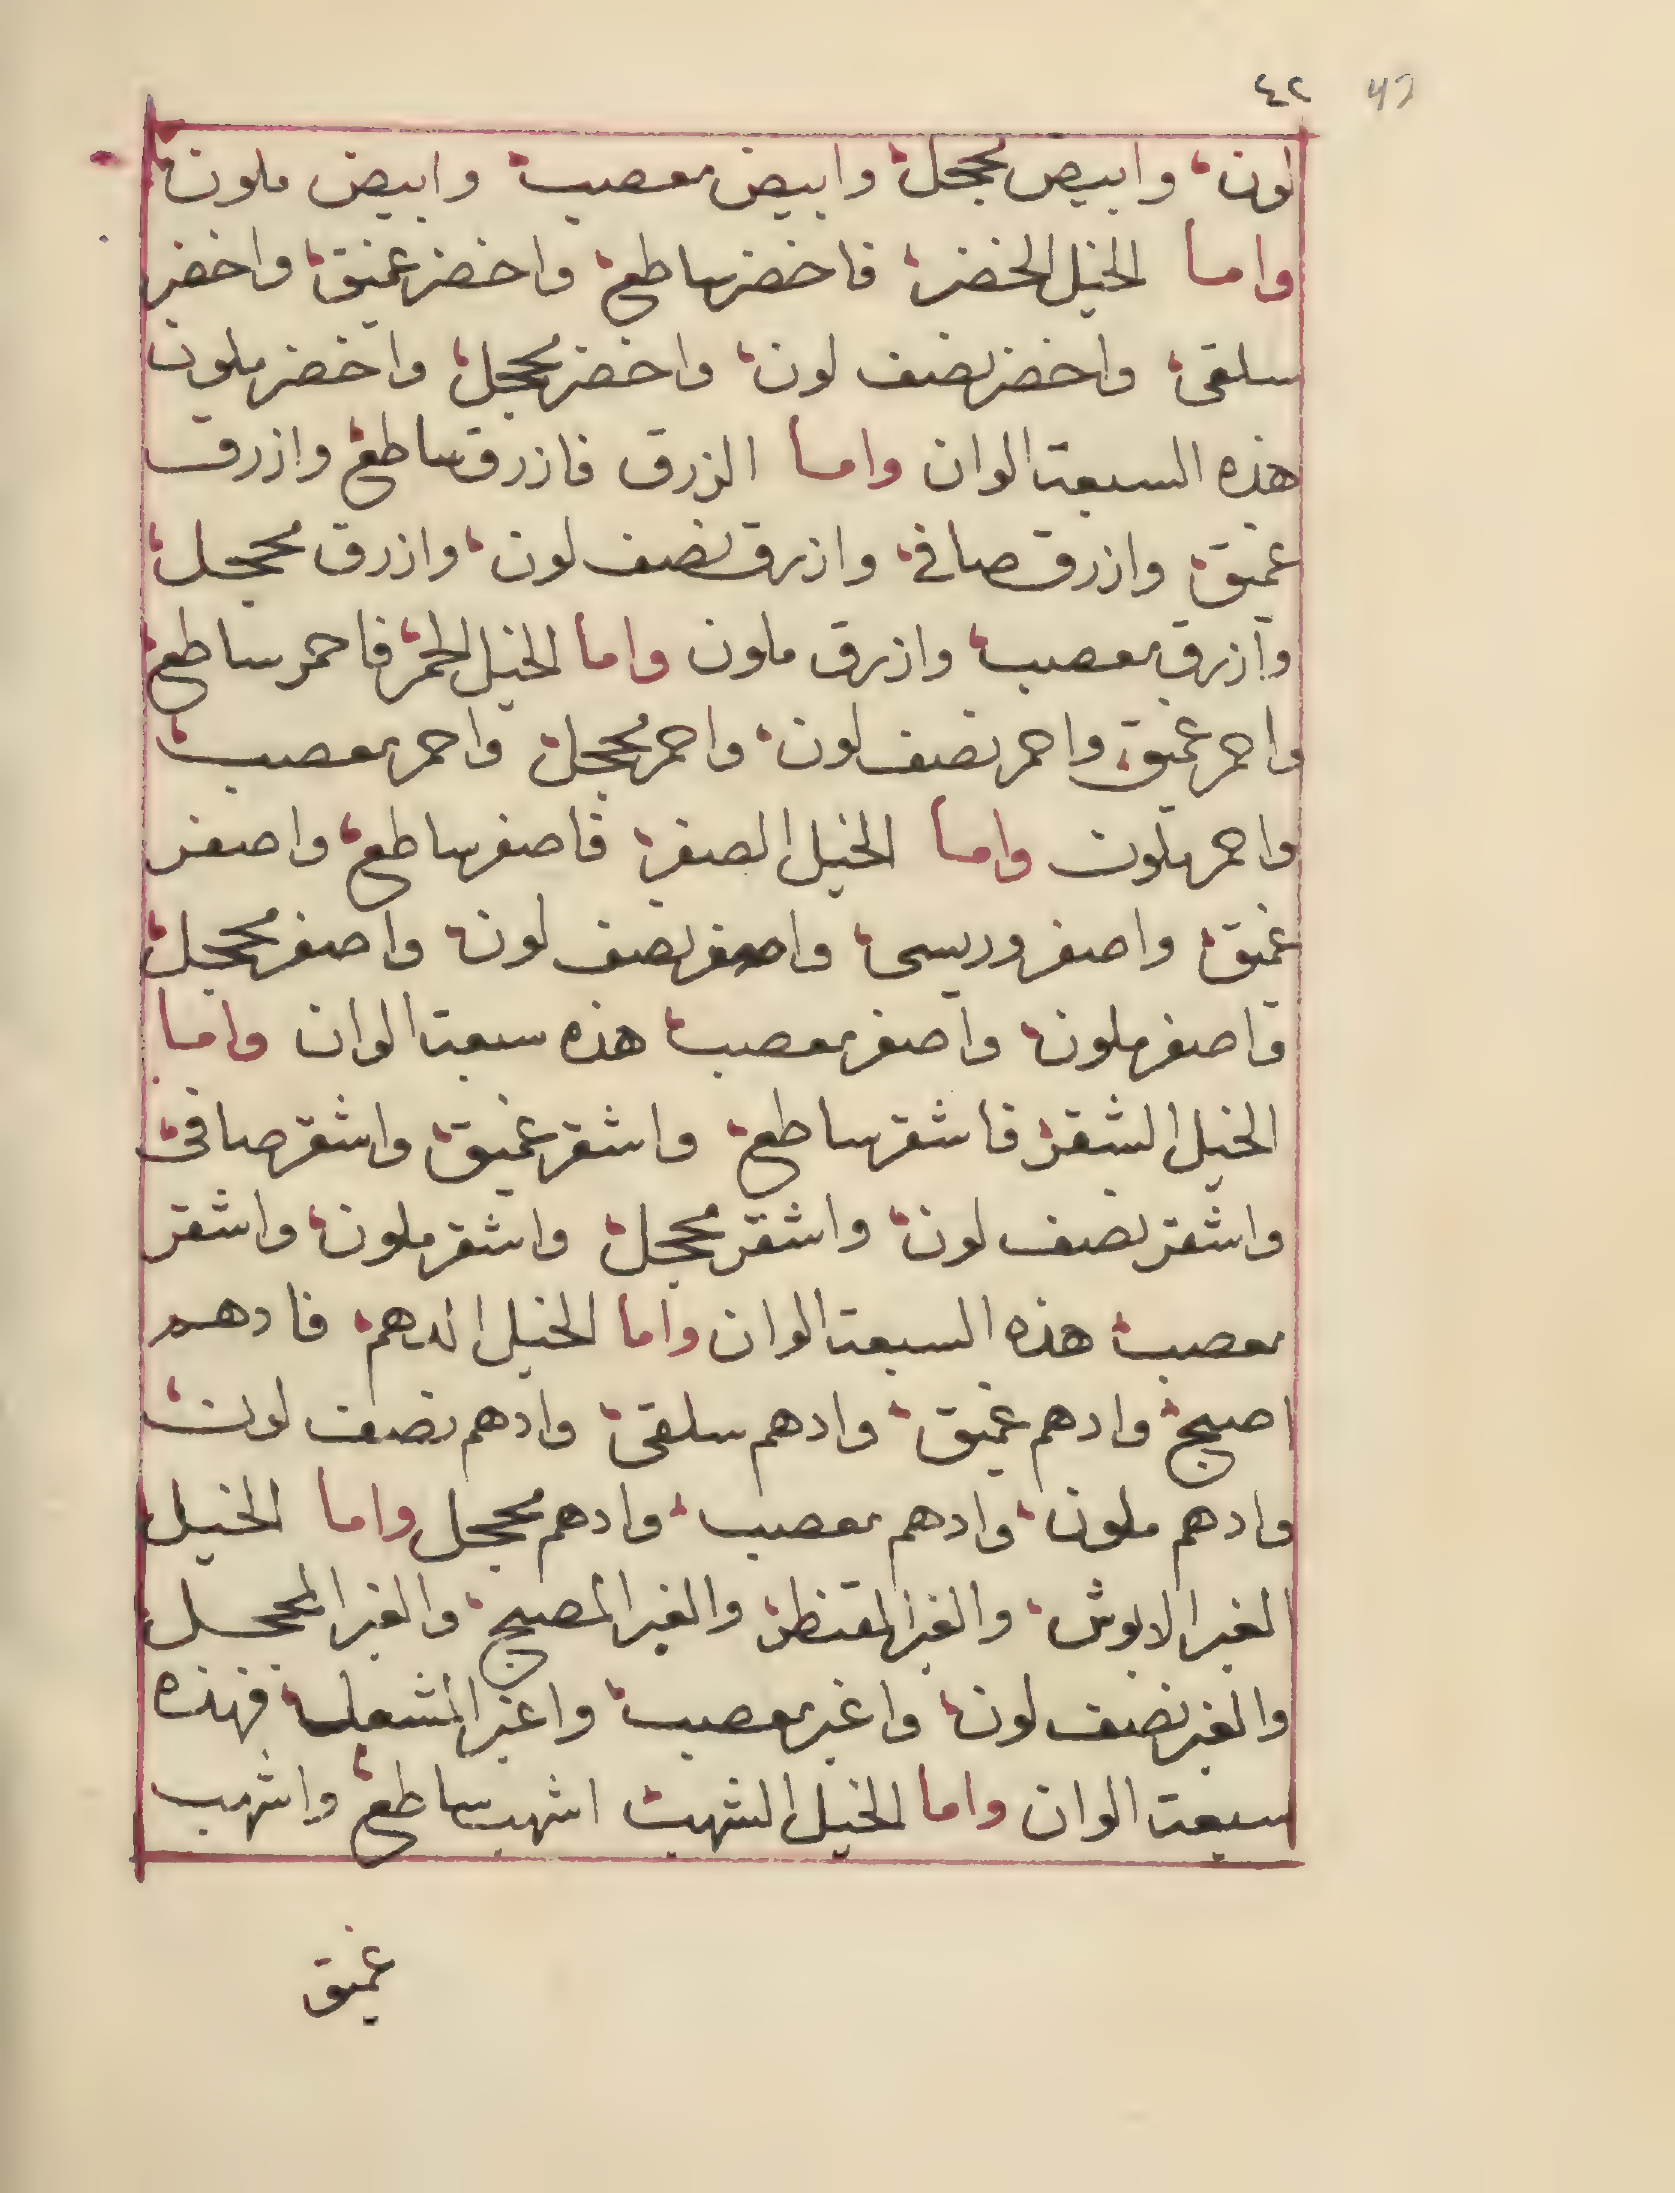 ٤٢ 42
لون، وابيض محجل، وابيض معصب، وابيض ملون،
واما الخيل الخضر، فاخضر ساطع، واخضر غميق، واخضر
سلقى، واخضر نصف لون، واخضر محجل، واخضر ملون
هذه السبعة الوان واما الزرق فازرق ساطع، وازرق
غميق، وازرق صافي، وازرق نصف لون، وازرق محجل،
وازرق معصب، وازرق ملون واما الخيل الحمر، فاحمر ساطع،
واحمر غميق، واحمر نصف لون، واحمر محجل، واحمر معصب،
واحمر ملون واما الخيل الصفر، فاصفر ساطع، واصفر
غميق، واصفر وريسى، واصفر نصف لون، واصفر محجل،
واصفر ملون، واصفر معصب، هذه سبعة الوان واما
الخيل الشقر، فاشقر ساطع، واشقر غميق، واشقر صافى،
واشقر نصف لون، واشقر محجل، واشقر ملون، واشقر
معصب، هذه السبعة الوان واما الخيل الدهم، فادهم
اصبح، وادهم غميق، وادهم سلقى، وادهم نصف لون،
وادهم ملون، وادهم معصب، وادهم محجل واما الخيل
الغبر الابوش، والغبر المقنطر، والغبر المصبح، والغبر المحجل
والغبر نصف لون، واغبر معصب، واغبر المشعل، فهذه
سبعة الوان واما الخيل الشهب، اشهب ساطع، واشهب
غميق